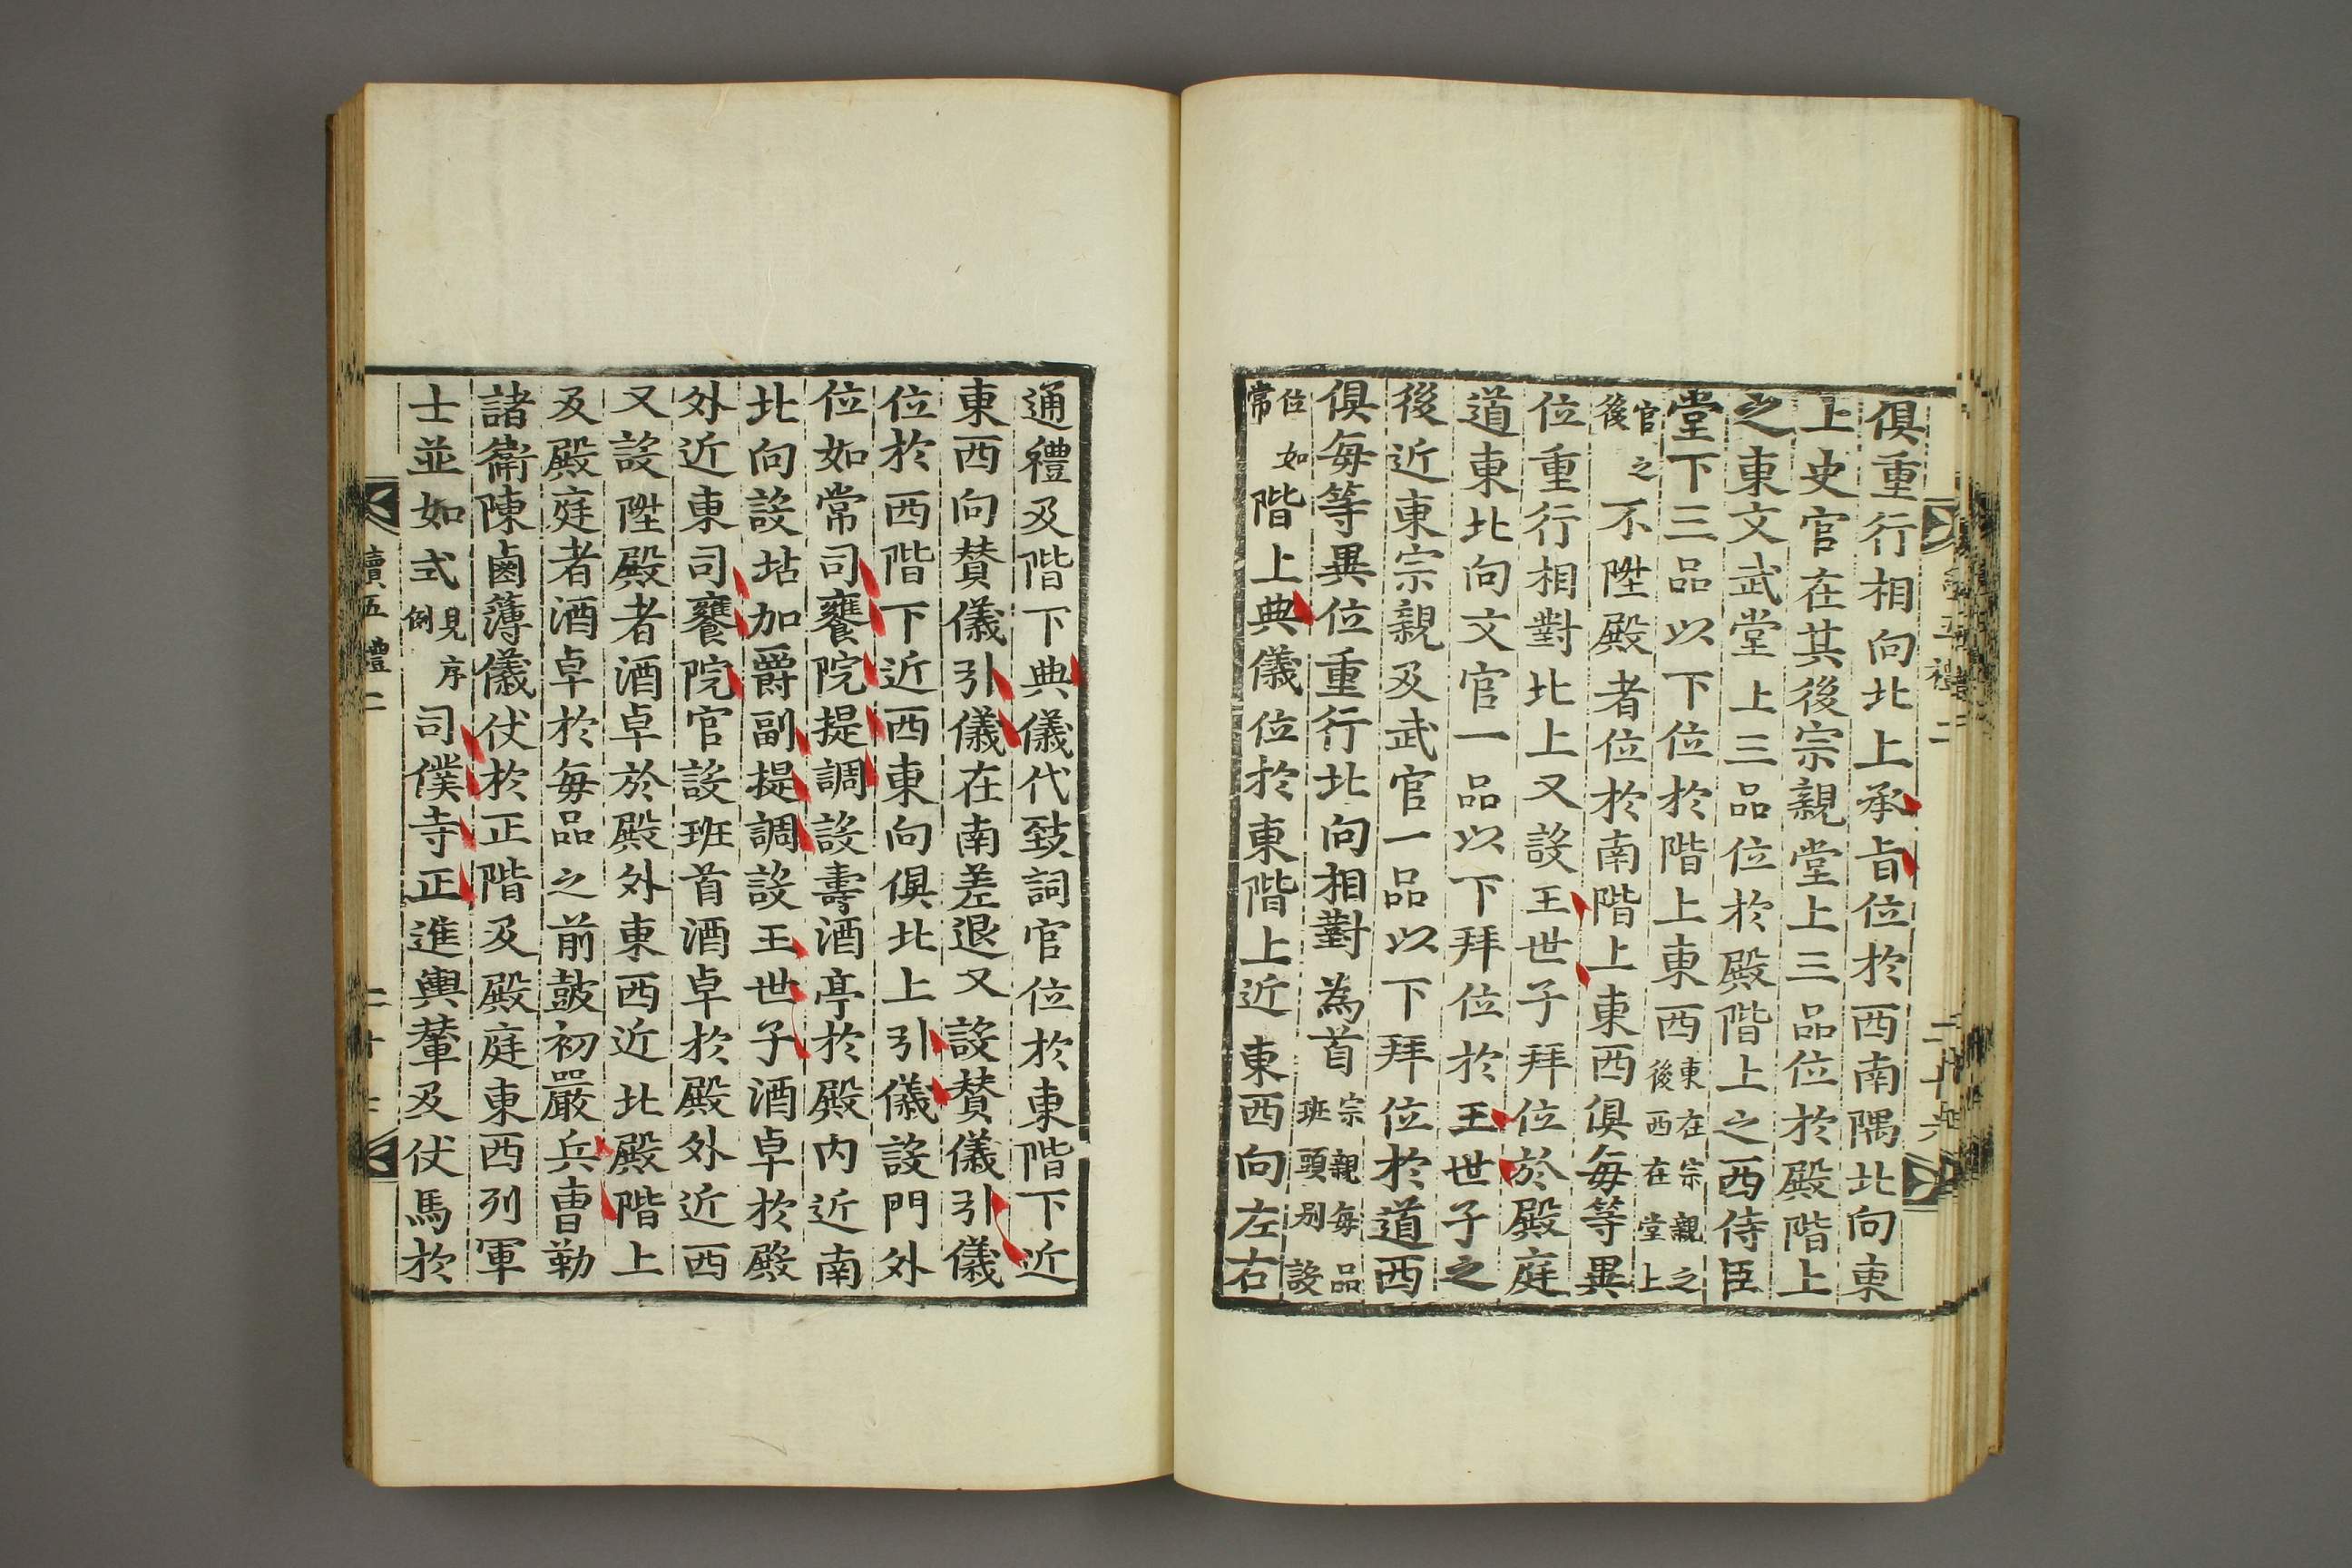 俱重行相向北上承旨位於西南隅北向東
上史官在其後宗親堂上三品位於殿階上
之東文武堂上三品位於殿階上之西侍臣
堂下三品以下位於階上東西東在宗親之後西在堂上
官之後不陞殿者位於南階上東西俱每等異
位重行相對北上又設王世子拜位於殿庭
道東北向文官一品以下拜位於王世子之
後近東宗親及武官一品以下拜位於道西
俱每等異位重行北向相對為首宗親每品班頭別設
位如常階上典儀位於東階上近東西向左右
通禮及階下典儀代致詞官位於東階下近
東西向賛儀引儀在南差退又設賛儀引儀
位於西階下近西東向俱北上引儀設門外
位如常司饔院提調設壽酒亭於殿內近南
北向設坫加爵副提調設王世子酒卓於殿
外近東司饔院官設班首酒卓於殿外近西
又設陞殿者酒卓於殿外東西近北殿階上
及殿庭者酒卓於每品之前鼓初嚴兵曹勒
諸衛陳鹵薄儀仗於正階及殿庭東西列軍
士並如式見序例司僕寺正進輿輦及仗馬於
續五禮二